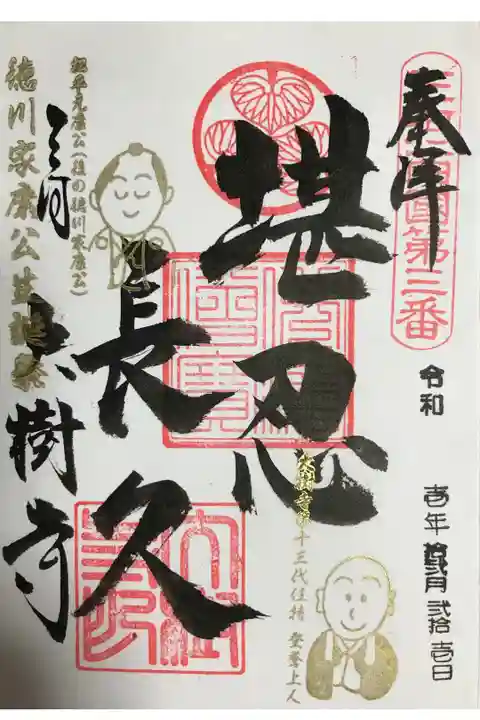 奉拝
三河西国第三番
令和 壱年 拾弐月 弐拾壱日
堪忍
長久
大樹寺第十三代住持 登誉上人
松平元康公(後の徳川家康公)
三河
大樹寺
徳川家康公生誕祭